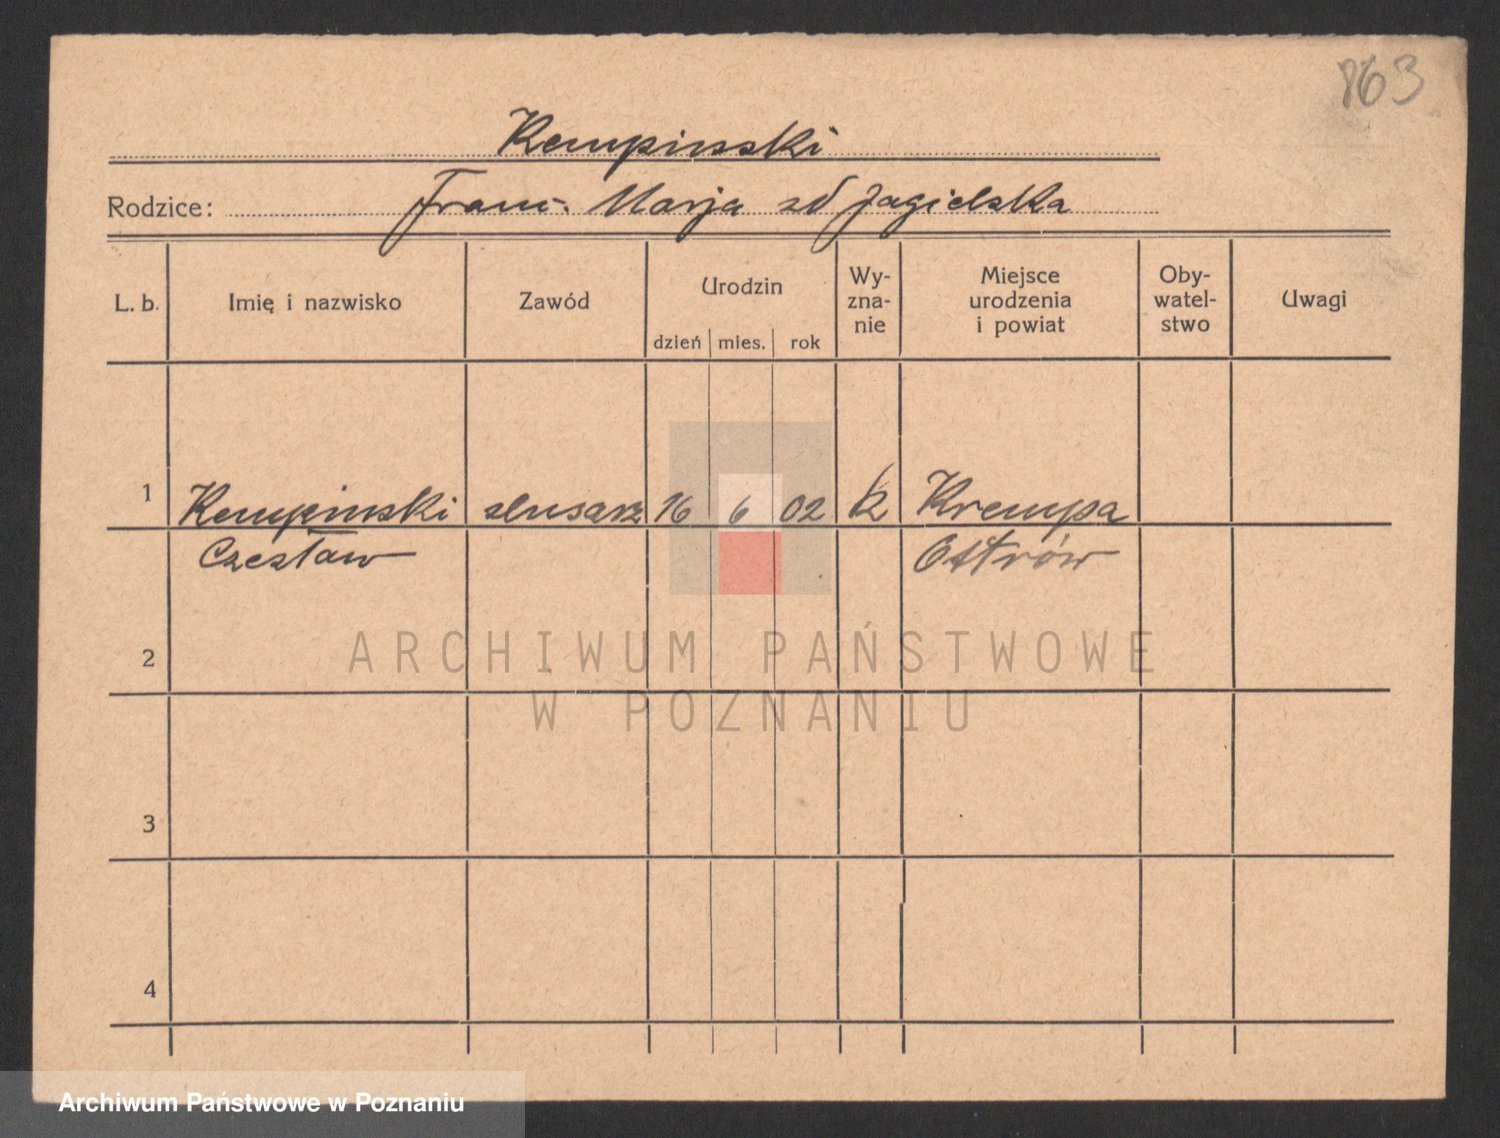 863
Kempinski
Rodzice: Franc. Marja zd Jagielska
L. b. Imię i nazwisko Zawód Urodzin dzień mies. rok Wy-zna-nie Miejsce urodzenia i powiat Oby-watel-stwo Uwagi
1 Kempinski slusarz 16 6 02 k Krempa
Czesław Ostrów
2
ARCHIWUM PAŃSTWOWE
W POZNANIU
3
4
Archiwum Państwowe w Poznaniu